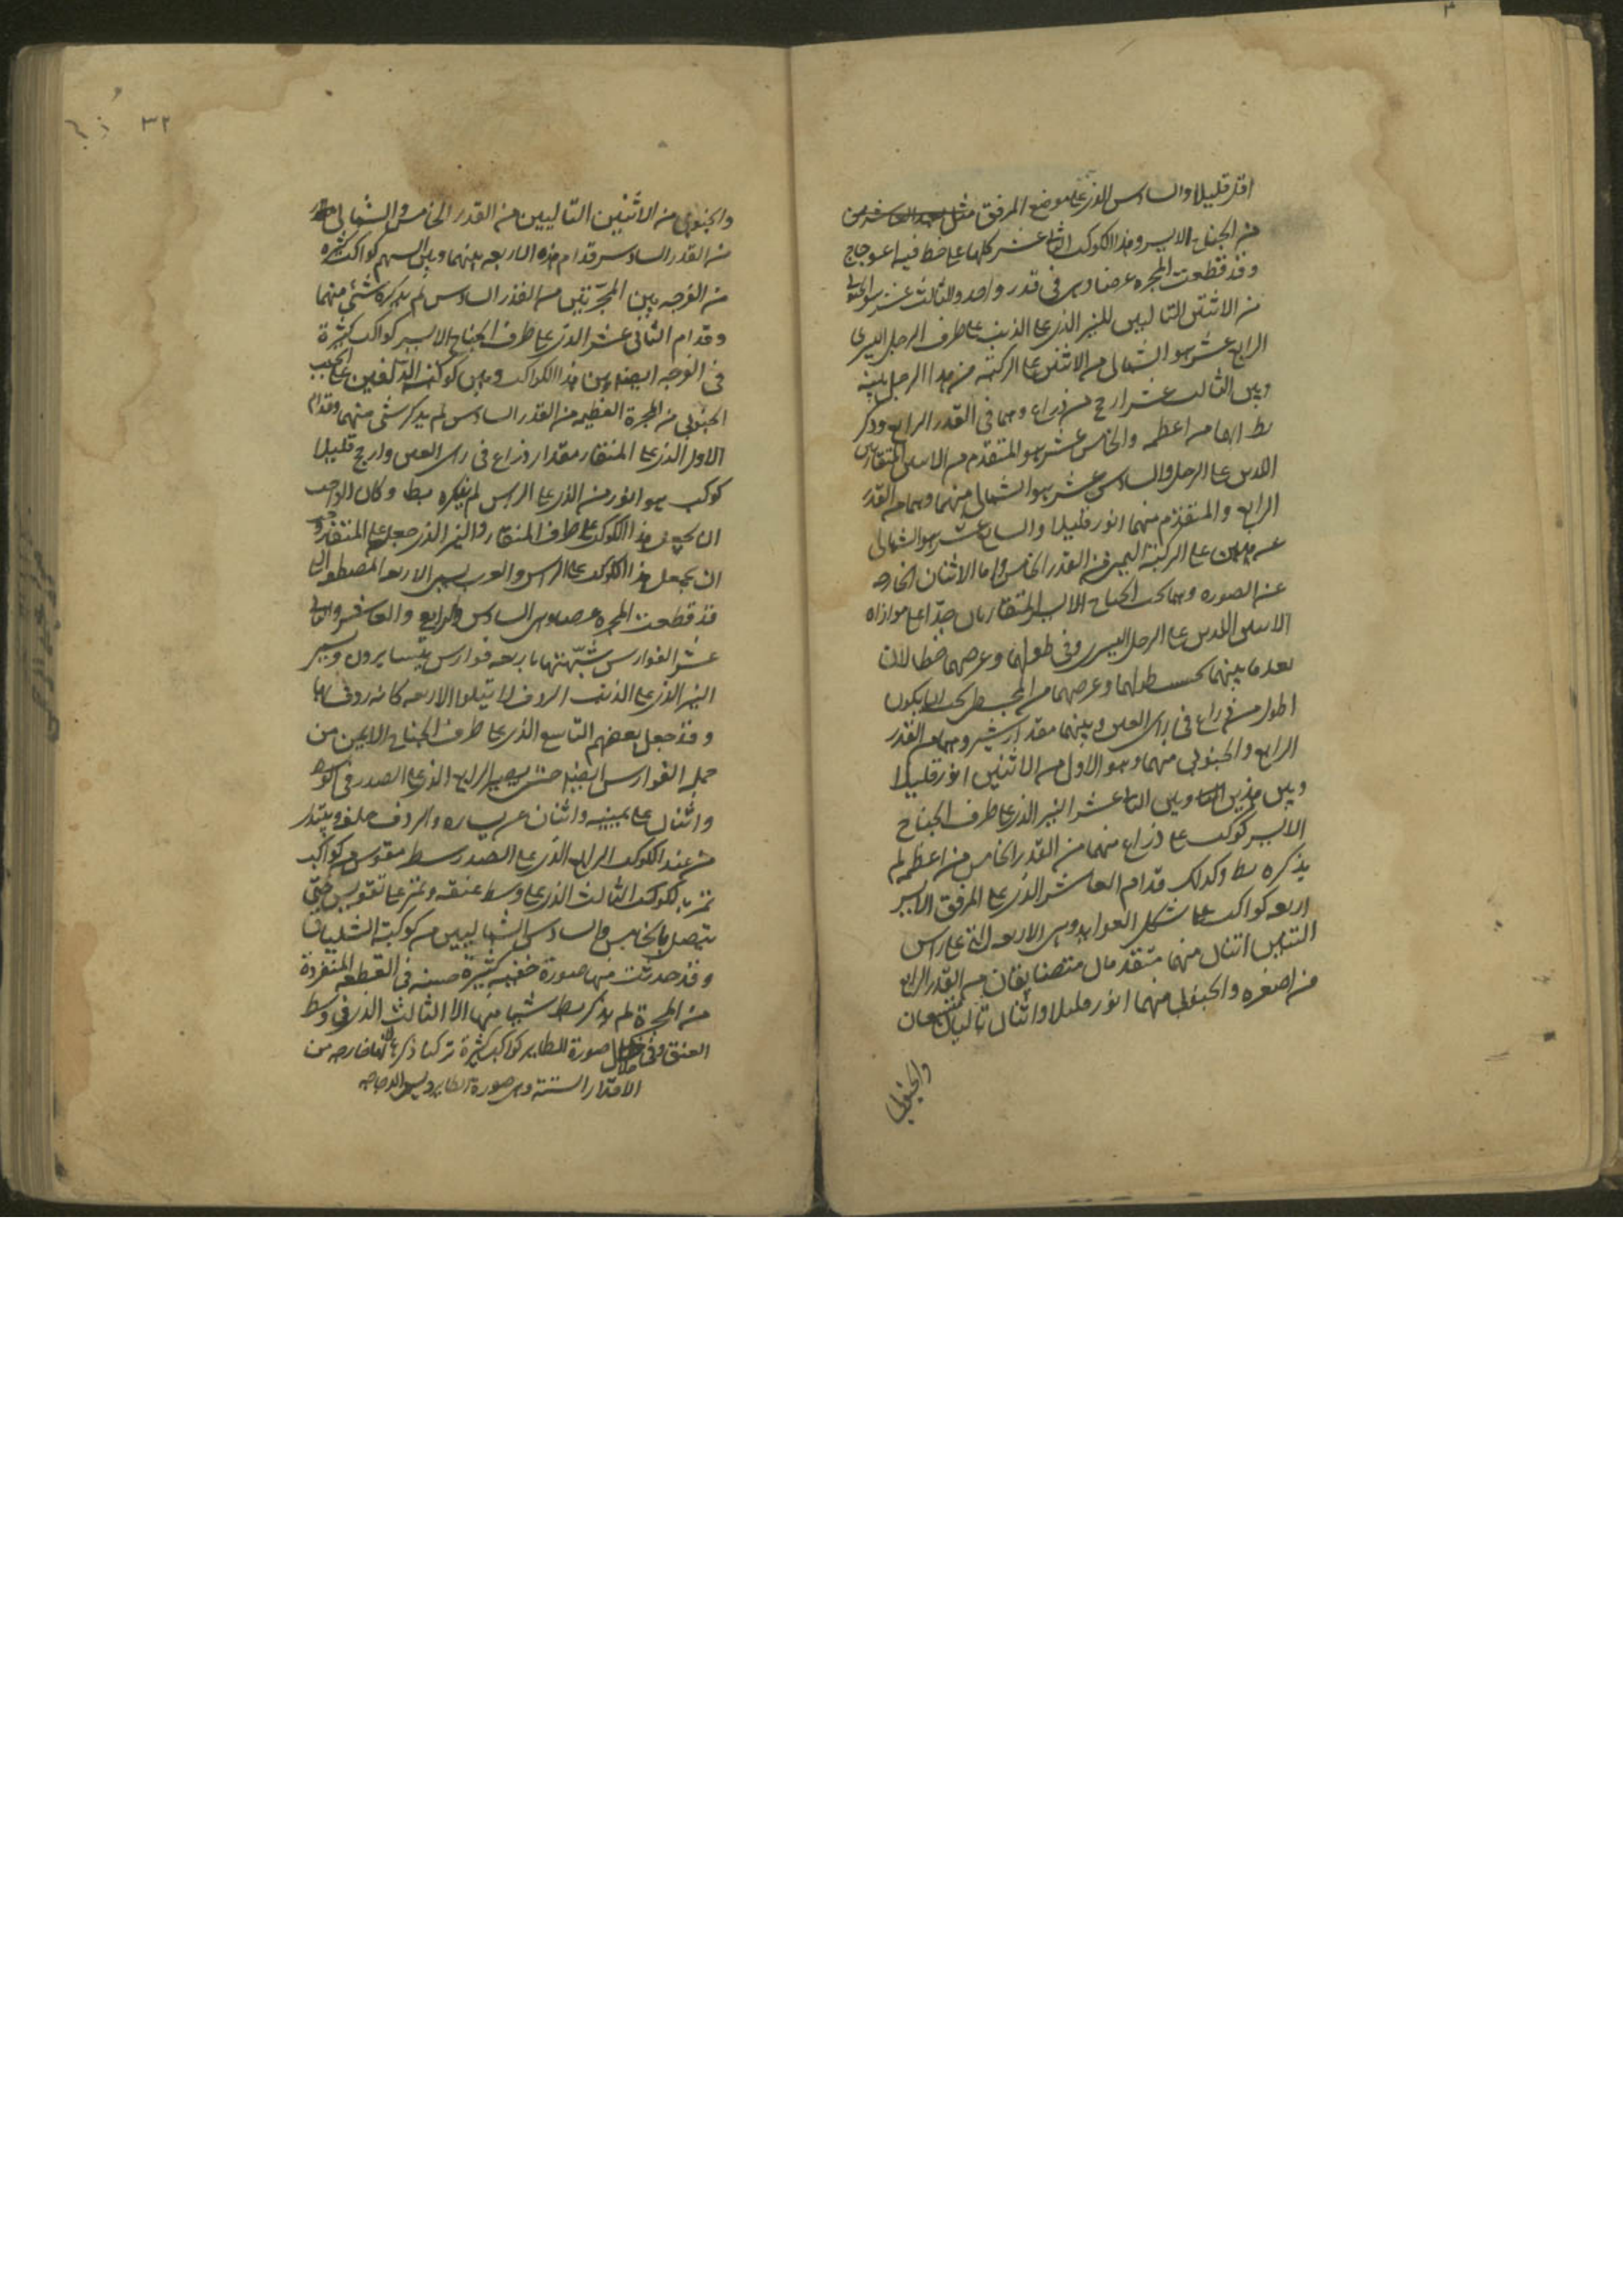 اقل قليلا والسادس الذى على موضع المرفق مثل
من الجناح الايسر وهذا الكوكب الثانى عشر كلها على خط فيه اعوجاج
وقد قطعت المجره عرضا وهى فى قدر واحد والثالث عشر هو الجنوبى
من الاثنين التاليين للنير الذى على الذنب على طرف الرجل اليسرى
الرابع عشر هو الشمالى من الاثنين على الركبة من هذا الرجل بينه
وبين الثالث عشر ارجح من ذراع وهما فى القدر الرابع وذكر
بط انهما من اعظمه والخامس عشر هو المتقدم من الاثنين المتقاربين
اللذين على الرجل والسادس عشر هو الشمالى منهما وهما من القدر
الرابع والمتقدم منهما انور قليلا والسابع عشر هو الشمالى
على الركبة اليمنى من القدر الخامس واما الاثنان الخارجه
عن الصورة وهما تحت الجناح الايسر المتقاربان جدا على موازاة
الاثنين اللذين على الرجل اليسرى وفى طولهما وعرضهما خطا لان
بعد ما بينهما بحسب طولهما وعرضهما من المجسطى يجب ان يكون
اطول من ذراع فى راى العين وبينهما مقدار شبر وهما من القدر
الرابع والجنوبى منهما وهو الاول من الاثنين انور قليلا
وبين هذين وبين الثانى عشر النير الذى على طرف الجناح
الايسر كوكب على ذراع منهما من القدر الخامس من اعظمه لم
يذكره بط وكذلك قدام العاشر الذى على المرفق الايسر
اربعه كواكب على شكل العوايد وهى الاربعه التى على راس
التنين اثنان منهما متقدمان متضايقان من القدر الرابع
من اصغره والجنوبى منهما انور قليلا واثنان تاليان متسعان
والجنوبى
٣٢
والجنوبى من الاثنين التاليين من القدر الخامس والشمالى
من القدر السادس قدام هذه الاربعه بينهما وبين السهم كواكب كثيره
من الفرجه بين المجرتين من القدر السادس لم يذكره شئ منهما
وقدام الثانى عشر الذى على طرف الجناح الايسر كواكب كثيرة
فى الفرجه ايضا بين هذا الكواكب وبين كوكب الدلفين على الجنب
الجنوبى من المجرة العظيمه من القدر السادس لم يذكر شئ منهما وقدام
الاول الذى على المنقار مقدار ذراع فى راى العين وارجح قليلا
كوكب هو انور من الذى على الراس لم يذكره بط وكان الواجب
ان يجعل هذا الكوكب على طرف المنقار والنير الذى جعل على المنقار
ان يجعل هذا الكوكب على الراس والعرب يسمى الاربعه المصطفه التى
قد قطعت المجره عرضا وهى السادس والرابع والعاشر والثانى
عشر الفوارس شبهتها باربعه فوارس يتسايرون ويسير
النير الذى على الذنب الردف لانه يتلوا الاربعه كانه ردف لها
وقد جعل بعضهم التاسع الذى على طرف الجناح الايمن من
جمله الفوارس ايضا حتى يصير الرابع الذى على الصدر فى الوسط
واثنان على يمينه واثنان عن يساره والردف خلفه ويبتدى
من عند الكوكب الرابع الذى على الصدر سطر مقوس من كواكب
تمر بالكوكب الثالث الذى على وسط عنقه وتمر على تقويس حتى
يتصل بالخامس والسادس الشماليين من كوكبة الشلياق
وقد حدثت منها صورة خفيه كثيرة حسنه فى القطعه المنفردة
من المجرة لم يذكر بط شيا منها الا الثالث الذى فى وسط
العنق وفى خلال صورة الطاير كواكب كثيرة تركنا ذكرها لانها خارجه من
الاقدار الستة وهى صورة الطاير ويسمى الدجاجه